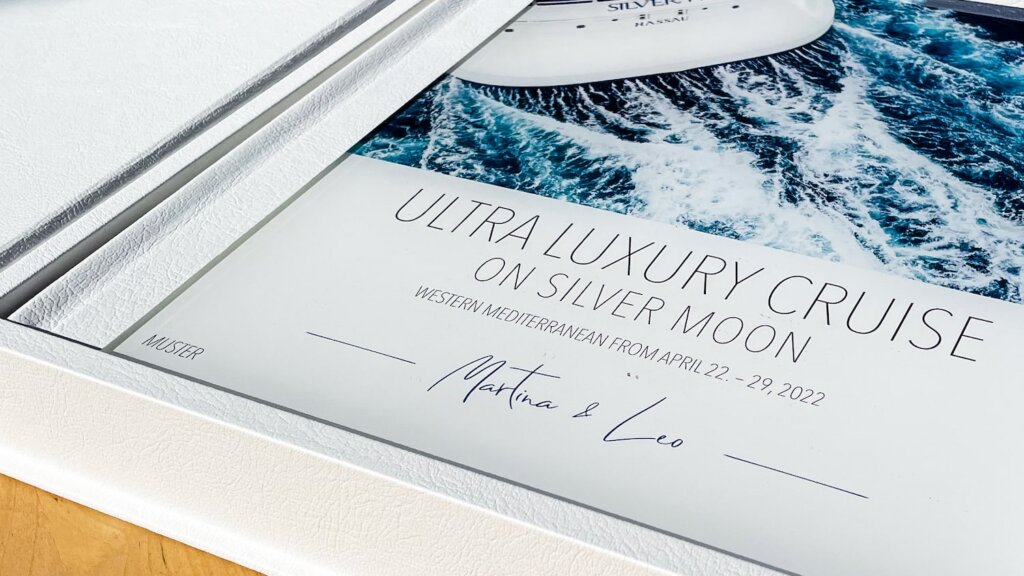 SILVER
NASSAU
ULTRA LUXURY CRUISE
ON SILVER MOON
WESTERN MEDITERRANEAN FROM APRIL 22. – 29, 2022
MUSTER
Martina & Leo